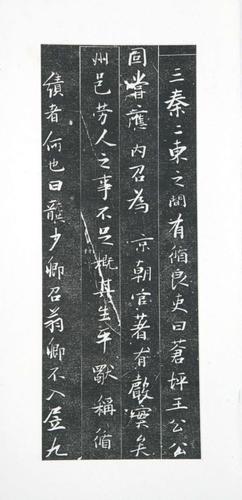 三秦二東之間有循良吏曰蒼坪王公公
固嘗應內召為 京朝官著有聲實矣
州邑勞人之事不足概其生平稱循
績者何也曰龔少卿召翁卿不入九